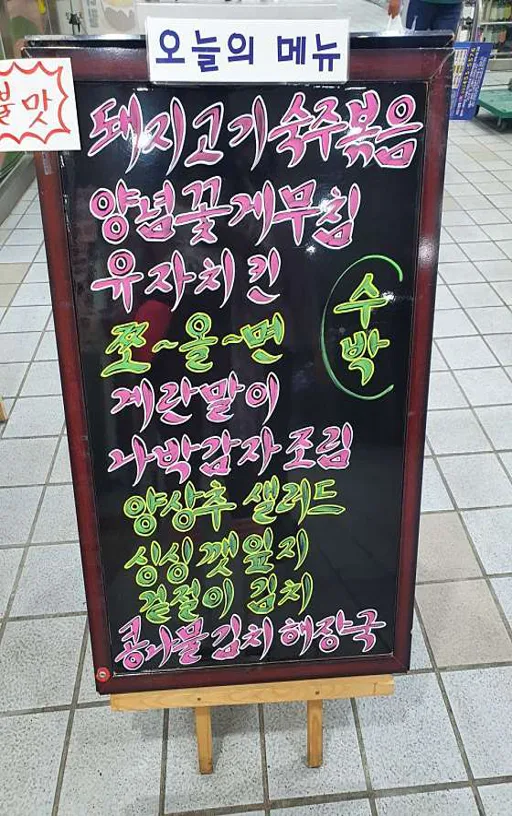 오늘의 메뉴
불맛
돼지고기숙주볶음
양념꽃게무침
유자치킨
수박
쪼~올~면
계란말이
나박감자조림
양상추 샐러드
싱싱깻잎지
겉절이 김치
콩나물김치해장국